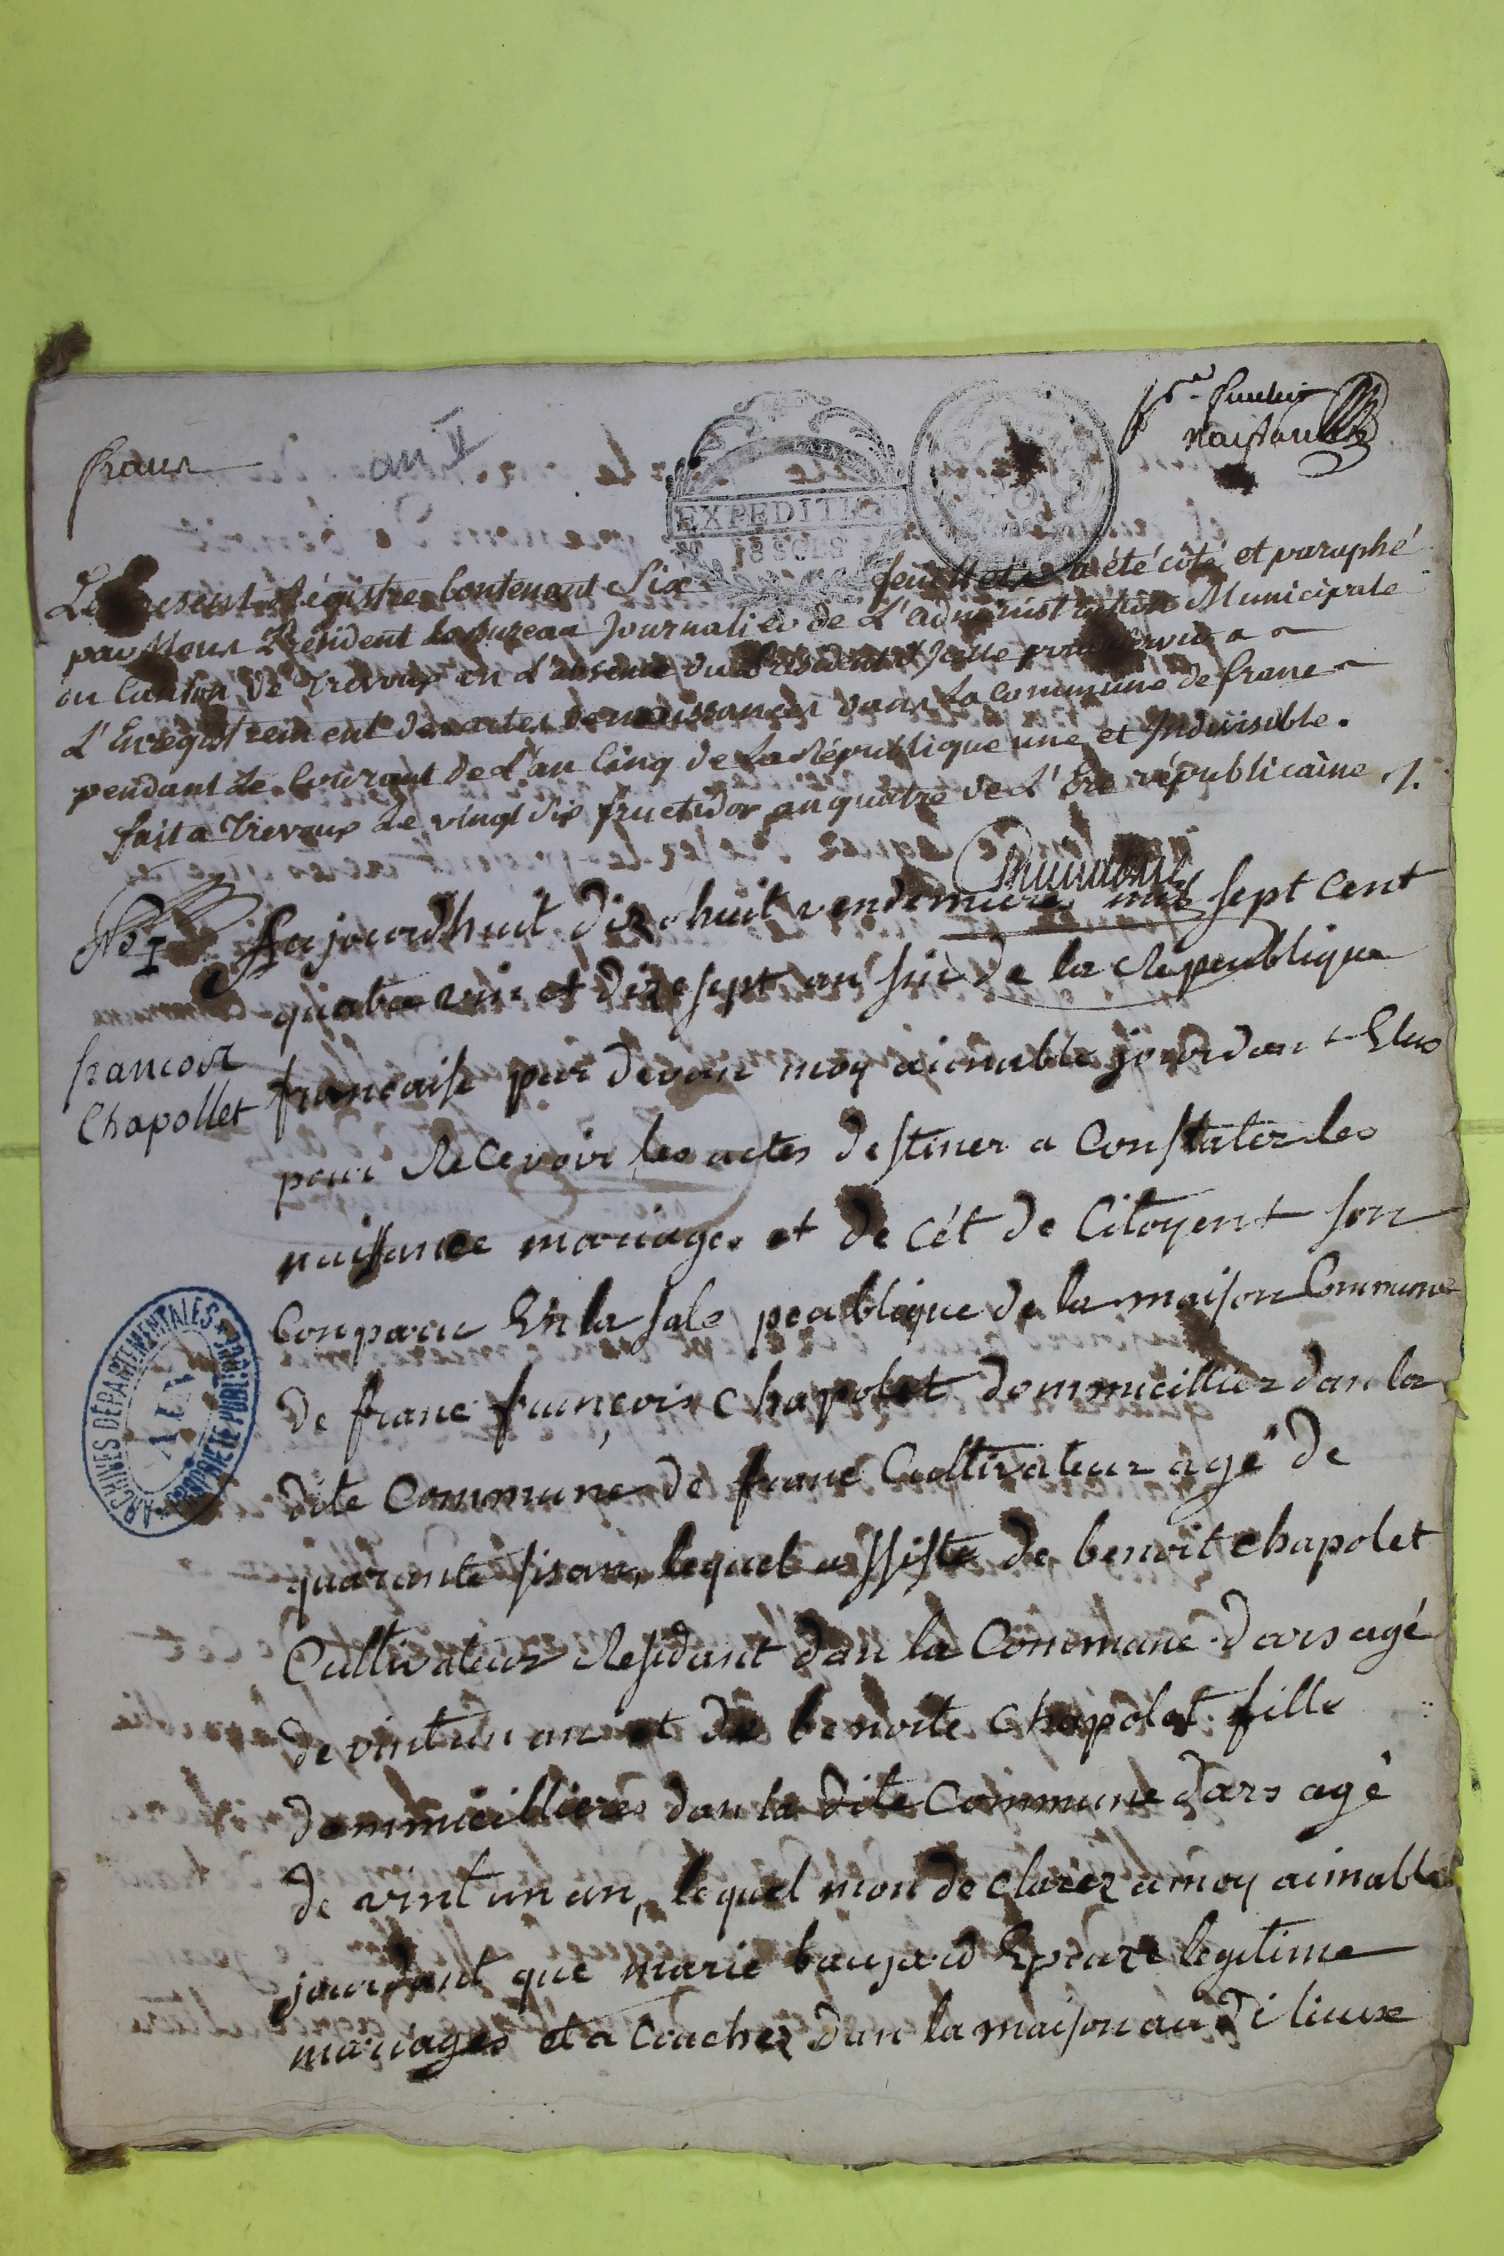 frans
an V
EXPEDITION
18 SOLS
pr. feuliet
naissance
Le present Régistre Contenant Six feuillets a été côté et paraphé
par Nous Président du bureau Journalier de L'administration Municipale
du Canton de Trevoux en L'absence du Président & Jcelle pour servir a
L'Enregistrement des actes de naissances dans la commune de franc
pendant Le Courant de L'an Cinq de La République une et Indivisible.
fait a Trevoux Le vingt six fructidor an quatre de L'Ere républicaine ./.
No 1
francois
Chapollet
Aujourdhuit dix e huit vendemiere mil sept cent
quatre vin et dix e sept an sin de la Republique
francaise par devan moy aimable jourdan Elus
pour Recevoir les actes destiner a Constater les
naissance mariages et de cét de Citoyent son
Conparu En la sale peublique de la maison Commune
De franc françois chapolet dommicillier dan la
dite Commune de franc Cultivateur agé de
quarante sisan, lequel assiste de benoit chapolet
Cultivateur Residant dan la Commune dars agé
de vint un an et de benoite chapolet fille
dommicillieres dan la dite Commune dars agé
de vint un an, lequel mon declarez a moy aimable
jourdant que marie baujard Epouze legitime
mariages et a Coucher dan la maison au di lieux
ARCHIVES DÉPARTEMENTALES
AIN
PROPRIÉTÉ PUBLIQUE